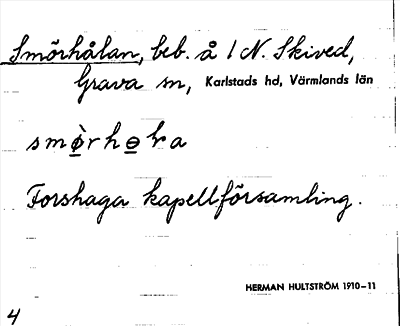 Smörhålan, beb. å 1 N. Skived,
Grava sn, Karlstads hd, Värmlands län
smø̀rhɵlra
Forshaga kapellförsamling.
HERMAN HULTSTRÖM 1910–11
4